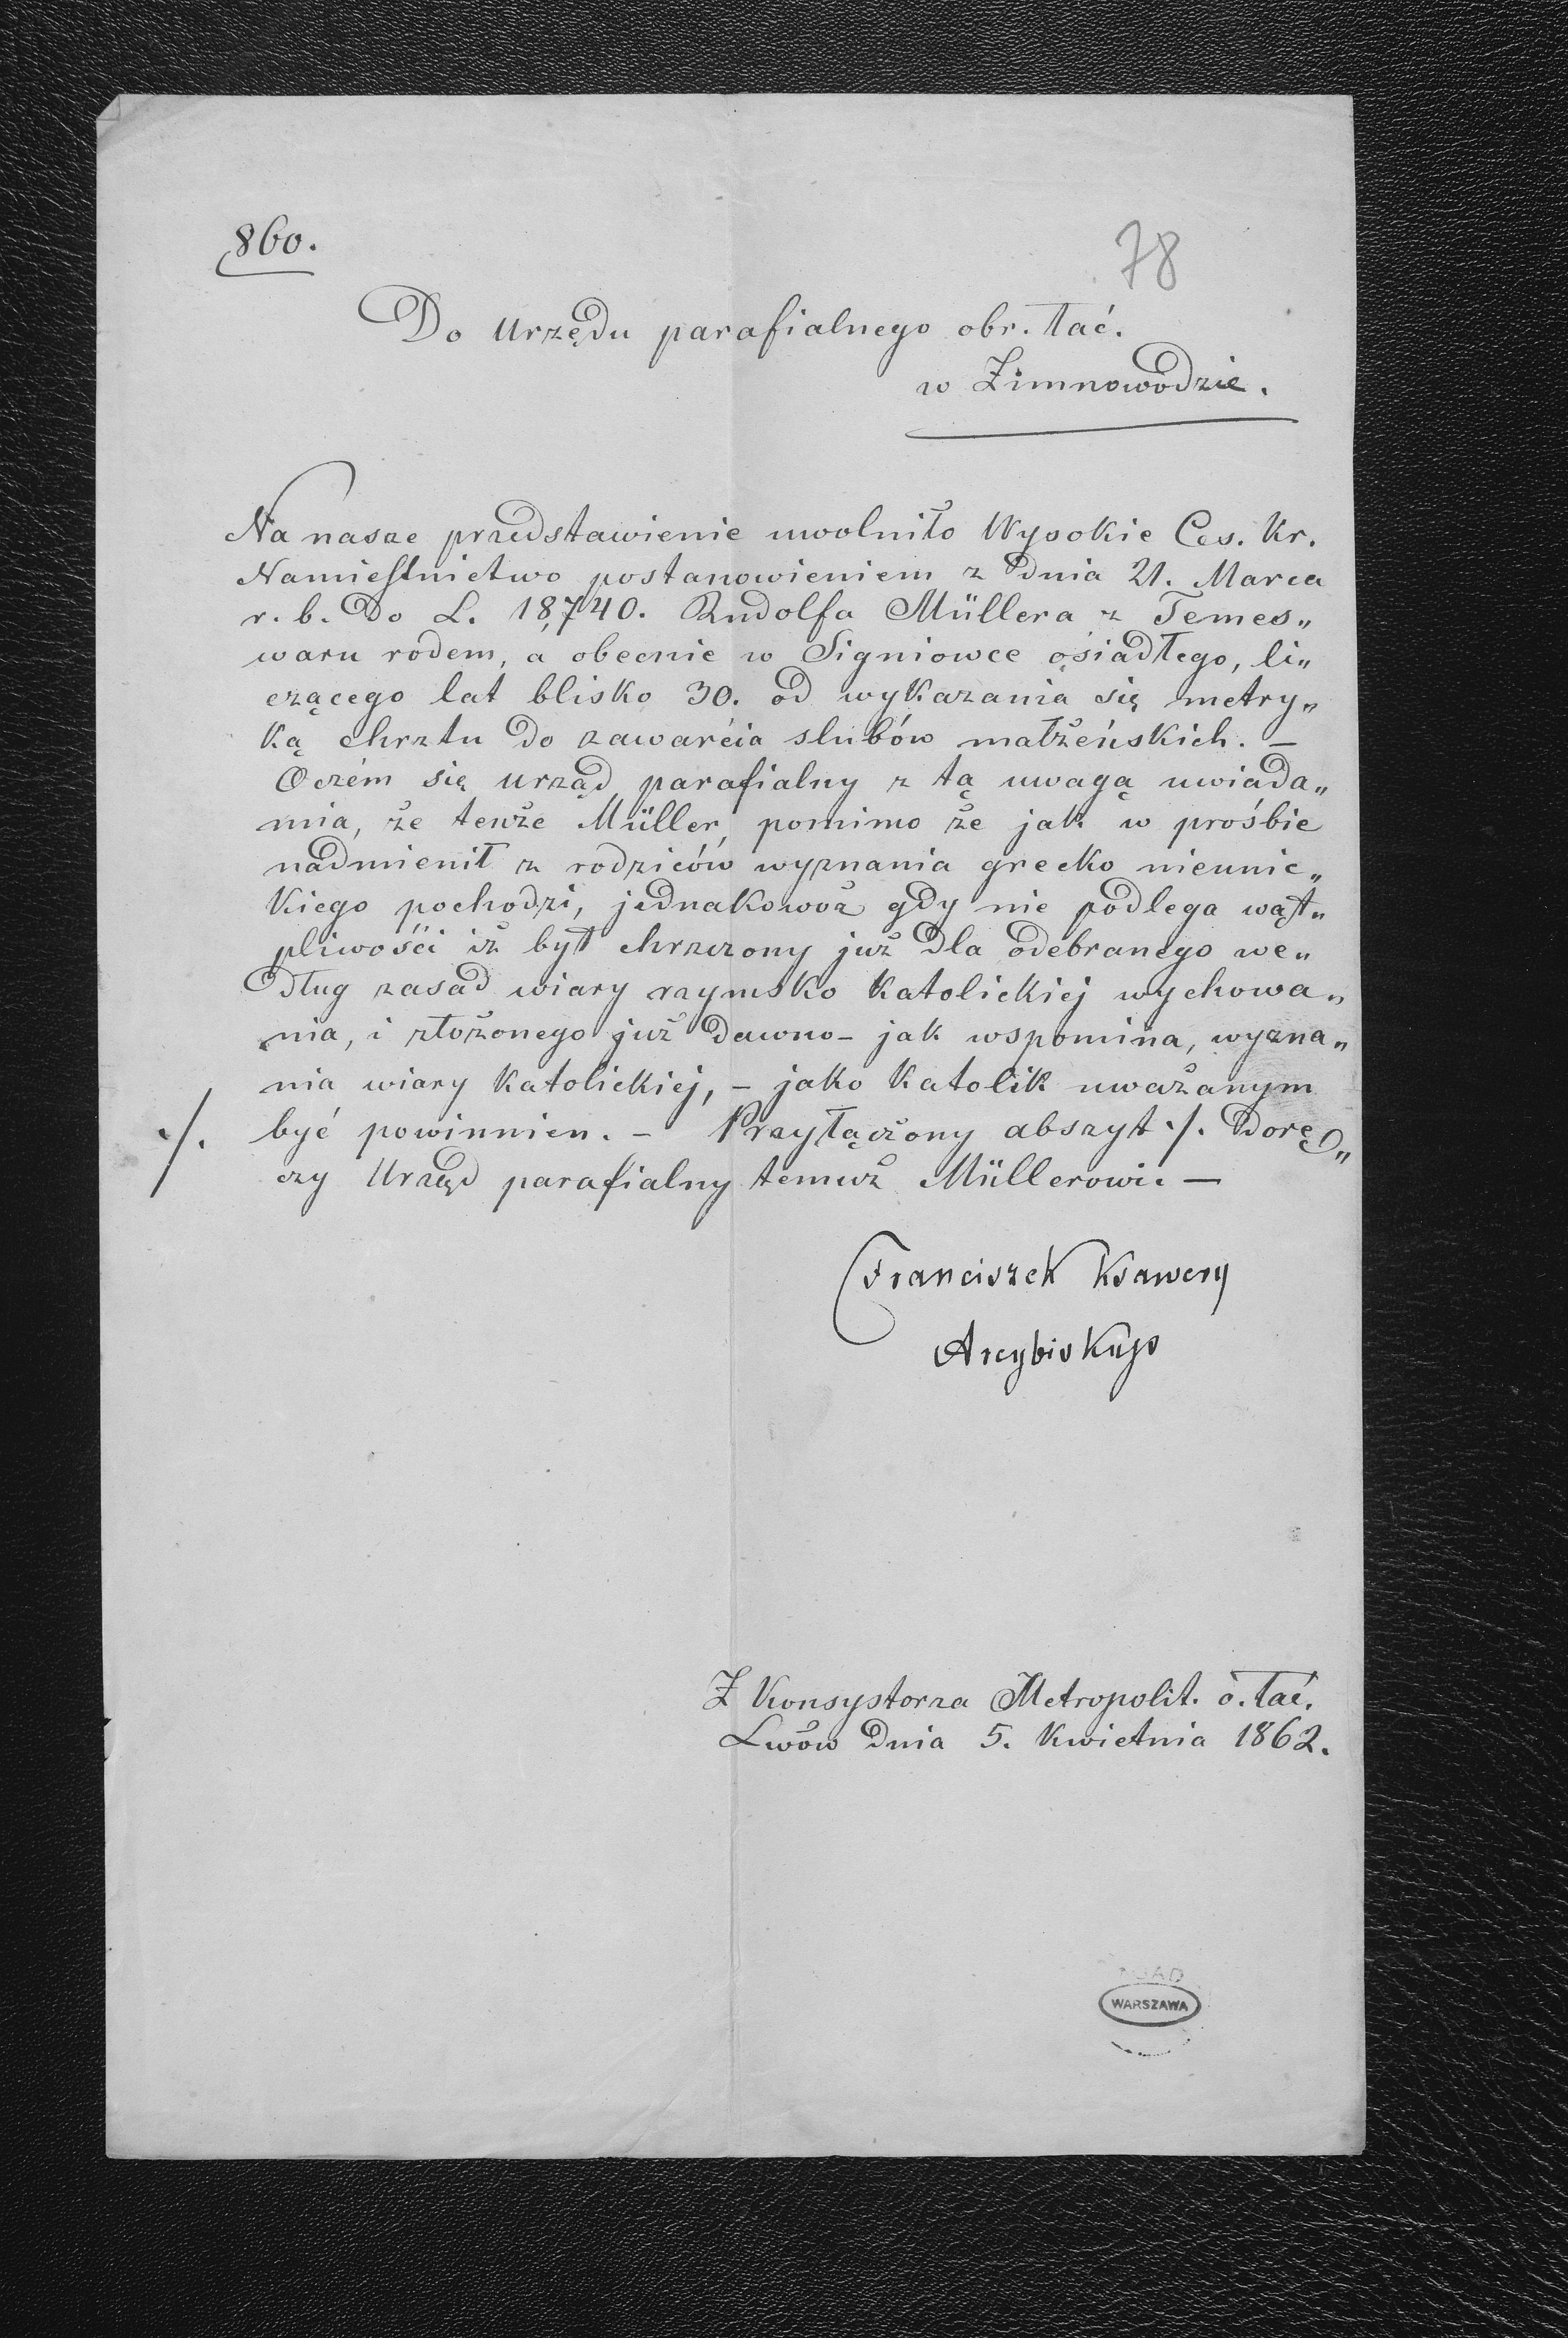 860.
78
Do Urzędu parafialnego obr. łać.
w Zimnowodzie.
Na nasze przedstawienie uwolniło Wysokie Ces. Kr.
Namiestnictwo postanowieniem z dnia 21. Marca
r. b. do L. 18,740. Rudolfa Müllera z Temes„
waru rodem, a obecnie w Signiowce osiadłego, li„
czącego lat blisko 30. od wykazania się metry„
ką chrztu do zawarćia slubów małżeńskich. –
Oczém się urząd parafialny z tą uwagą uwiada„
mia, że tenże Müller, pomimo że jak w prośbie
nadmienił z rodziców wyznania grecko nieunic„
kiego pochodzi, jednakowoż gdy nie podlega wąt„
pliwośći iż był chrzczony już dla odebranego we„
dług zasad wiary rzymsko katolickiej wychowa„
nia, i złożonego już dawno – jak wspomina, wyzna„
nia wiary katolickiej, – jako katolik uważanym
./. być powinnien. – Przyłączony abszyt ./. dorę„
czy Urząd parafialny temuż Müllerowi. –
Franciszek Ksawery
Arcybiskup
Z Konsystorza Metropolit. o. łać.
Lwów dnia 5. Kwietnia 1862.
AGAD
WARSZAWA